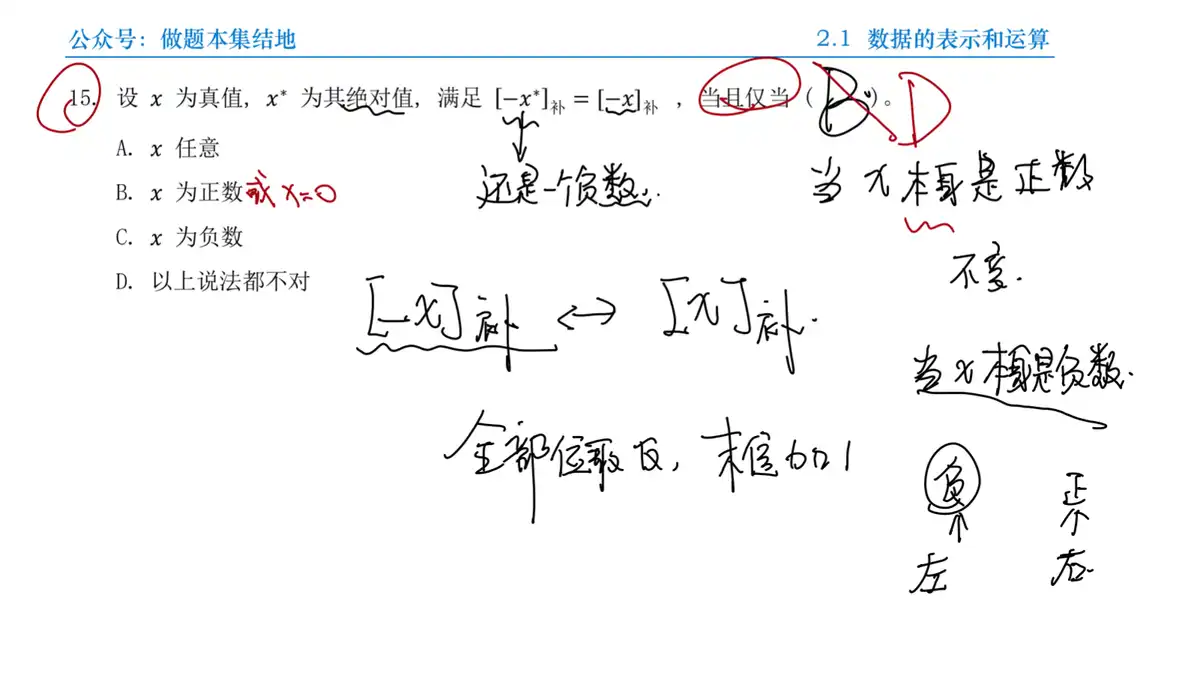 公众号：做题本集结地
2.1 数据的表示和运算
15. 设 x 为真值，x* 为其绝对值，满足 [−x*]补 = [−x]补 ，当且仅当（ B ）。 D
A. x 任意
B. x 为正数 或 x=0
C. x 为负数
D. 以上说法都不对
还是一个负数.
当 x 本身是正数
不变.
[−x]补 ↔ [x]补.
当 x 本身是负数.
全部位取反，末位加1
负 正
左 右